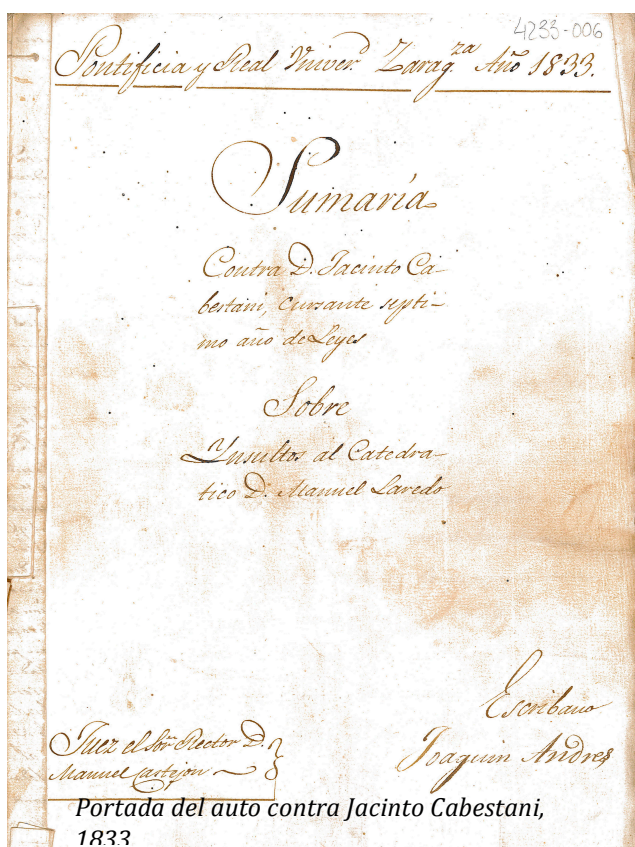 4233-006
Pontificia y Real Univer.d Zarag.za Año 1833.
Sumaría
Contra D. Jacinto Ca-
bestani, cursante septi-
mo año de Leyes
Sobre
Ynsultos al Catedra-
tico D. Manuel Laredo
Escribano
Joaquin Andres
Juez el Sor. Rector D.
Manuel Castejon
Portada del auto contra Jacinto Cabestani,
1833